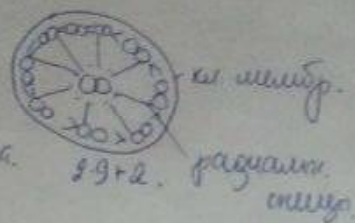 кл мембр.
а.
29+2.
радиальн.
спица